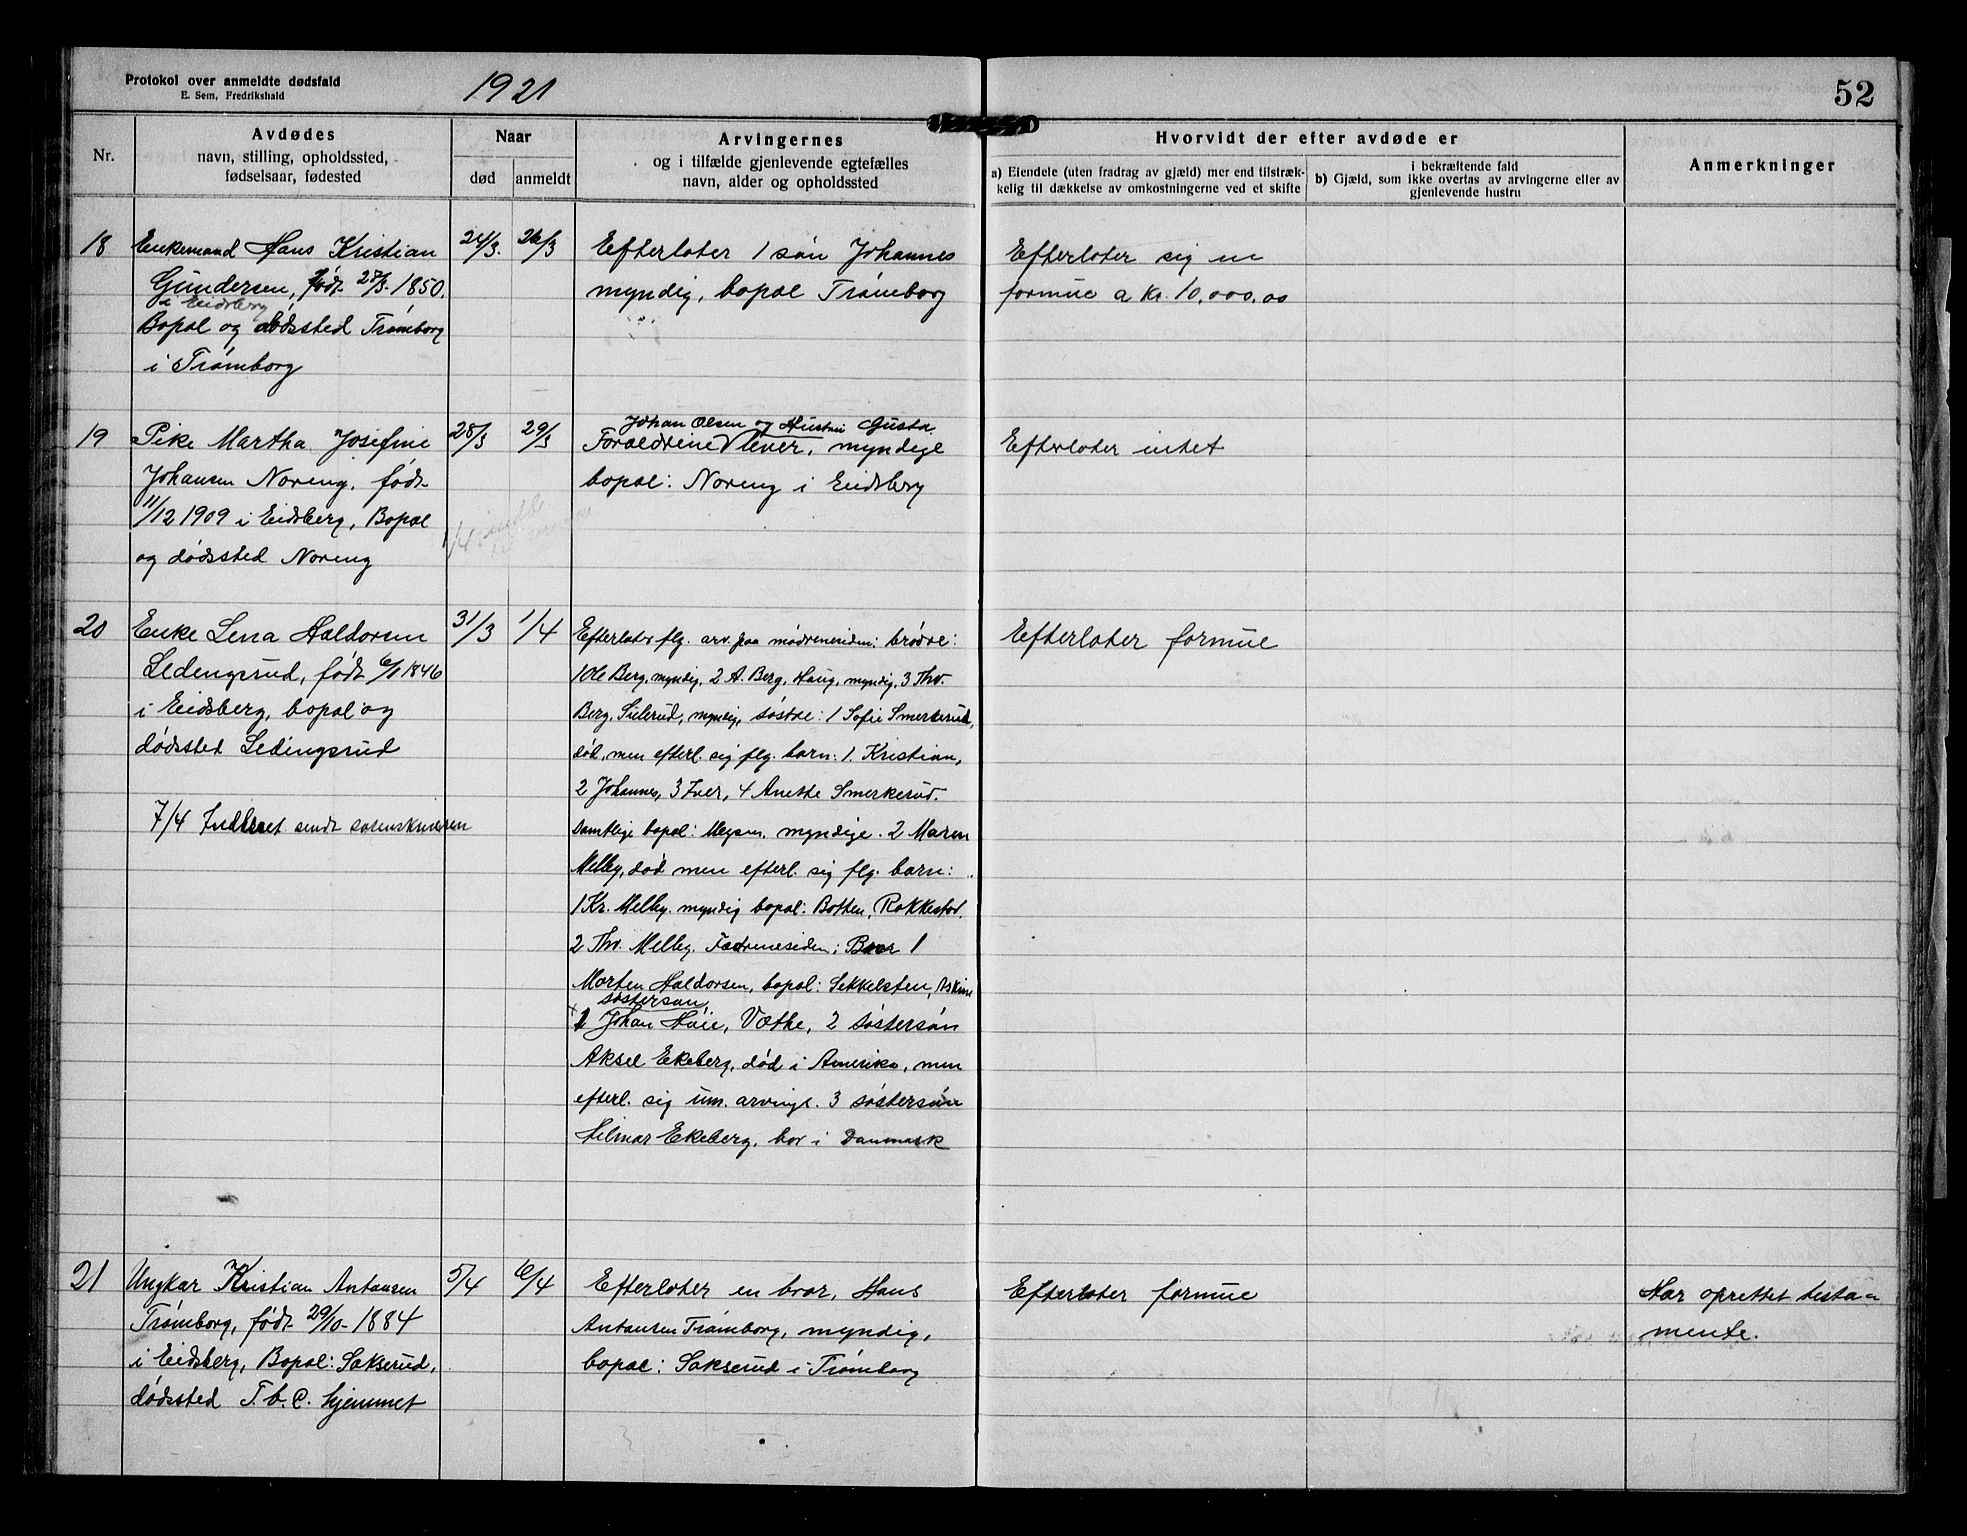 Protokol over anmeldte dødsfald
E. Sem, Fredrikshald
1921
52
Nr.
Avdødes
navn, stilling, opholdssted,
fødselsaar, fødested
Naar
død
anmeldt
Arvingernes
og i tilfælde gjenlevende egtefælles
navn, alder og opholdssted
Hvorvidt der efter avdøde er
a) Eiendele (uten fradrag av gjæld) mer end tilstræk-
kelig til dækkelse av omkostningerne ved et skifte
i bekræftende fald
b) Gjæld, som ikke overtas av arvingerne eller av
gjenlevende hustru
Anmerkninger
18
Enkemand Hans Kristian
Gundersen, født 27/3-1850.
i Eidsberg
Bopæl og dødssted Trømborg
i Trømborg
24/3.
26/3
Efterlater 1 søn Johannes
myndig, bopæl Trømborg
Efterlater sig en
formue a Kr. 10,000.00
19
Pike Martha Josefine
Johansen Noreng, født
11/12 1909 i Eidsberg, Bopæl
og dødssted Noreng
28/3
29/3
Johan Olsen og Hustru Gusta
Forældrene lever, myndige
bopæl: Noreng i Eidsberg
Efterlater intet
20
Enke Lena Haldorsen
Ledengsrud, født 6/1 1846
i Eidsberg, bopæl og
dødssted Ledingsrud
7/4 Indberet. sendt sorenskriveren
31/3
1/4
Efterlater flg. arv. paa mødreneside: brødre:
1 Ole Berg, myndig, 2 A. Berg, Haug, myndig, 3 Thv.
Berg, Sulerud, myndig, søstre: 1 Sofie Smerkerud,
død, men efterl. sig flg. barn: 1. Kristian,
2 Johannes, 3 Iver, 4 Anethe Smerkerud.
Samtlige bopæl: Mysen, myndige. 2 Maren
Melby, død men efterl. sig flg. barn:
1 Kr. Melby. myndig bopæl: Botten, Rakkestad.
2 Thv. Melby. Fædreneside: Bror 1
Morten Haldorsen, bopæl: Sekkelsten, Askim
søstersøn,
1 Johan Høie, Væthe, 2 søstersøn
Aksel Ekeberg, død i Amerika, men
efterl. sig um. arvinge. 3 søstersøn
Hilmar Ekeberg, bor i Danmark
Efterlater formue
21
Ungkar Kristian Antonsen
Trømborg, født 29/10-1884
i Eidsberg, Bopæl: Sakserud,
dødssted T. b. C. hjemmet
5/4
6/4
Efterlater en bror, Hans
Antonsen Trømborg, myndig,
bopæl: Sakserud i Trømborg
Efterlater formue
Har oprettet testa-
mente.